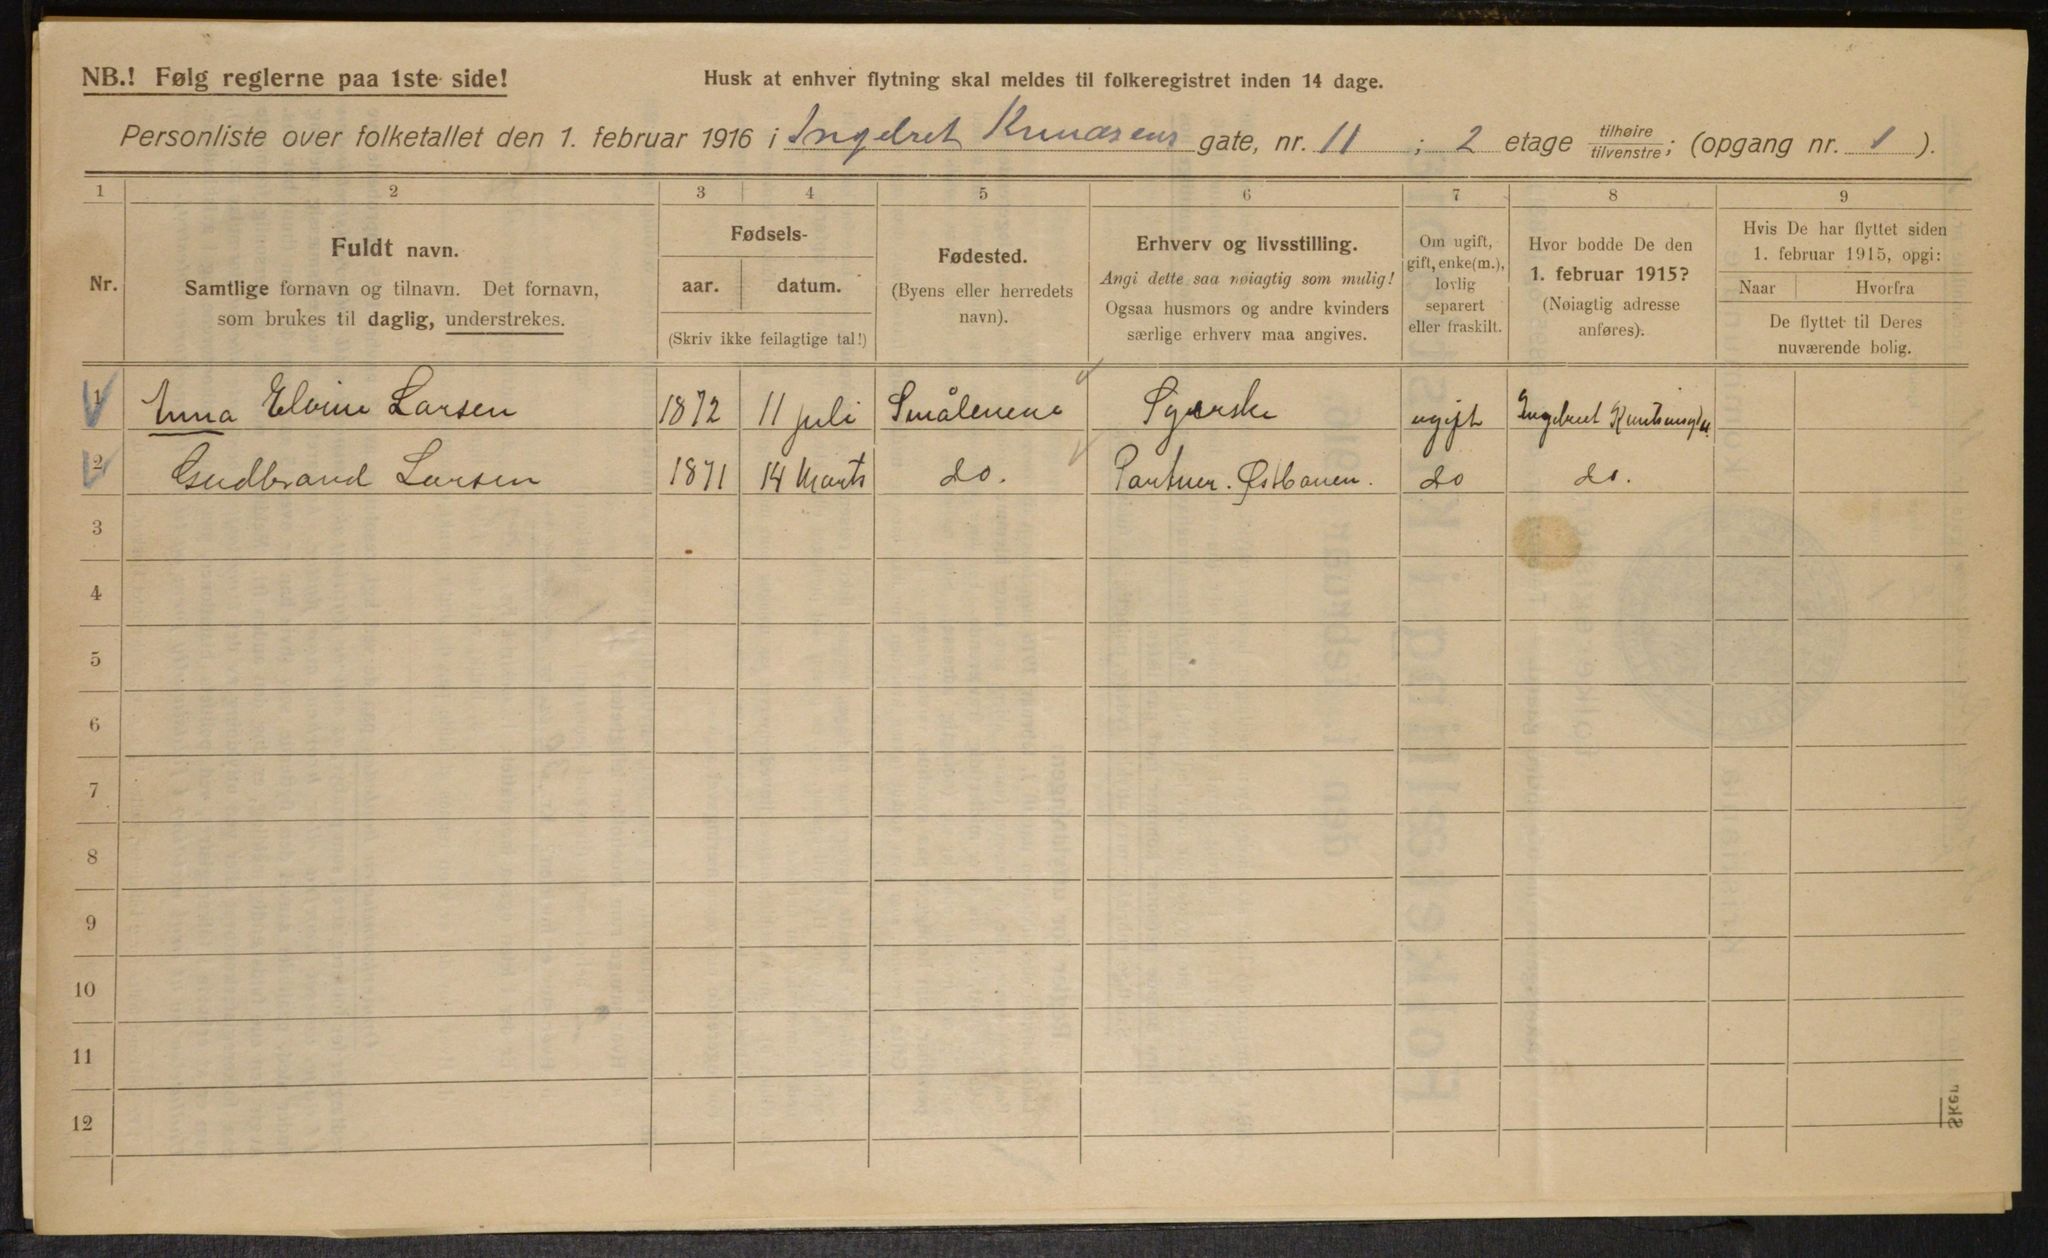 NB.! Følg reglerne paa 1ste side!
Husk at enhver flytning skal meldes til folkeregistret inden 14 dage.
Personliste over folketallet den 1. februar 1916 i Ingebret Knudsens gate, nr. 11 ; 2 etage tilhøire/tilvenstre; (opgang nr. 1 ).
1 2 3 4 5 6 7 8 9
Nr.
Fuldt navn.
Samtlige fornavn og tilnavn. Det fornavn,
som brukes til daglig, understrekes.
Fødsels-
aar. datum.
(Skriv ikke feilagtige tal!)
Fødested.
(Byens eller herredets
navn).
Erhverv og livsstilling.
Angi dette saa nøiagtig som mulig!
Ogsaa husmors og andre kvinders
særlige erhverv maa angives.
Om ugift,
gift, enke(m.),
lovlig
separert
eller fraskilt.
Hvor bodde De den
1. februar 1915?
(Nøiagtig adresse
anføres).
Hvis De har flyttet siden
1. februar 1915, opgi:
Naar Hvorfra
De flyttet til Deres
nuværende bolig.
1 Anna Elvine Larsen 1872 11 juli Smålenene Syerske ugift Ingebret
2 Gudbrand Larsen 1871 14 Marts do. Østbanen. do do.
3
4
5
6
7
8
9
10
11
12